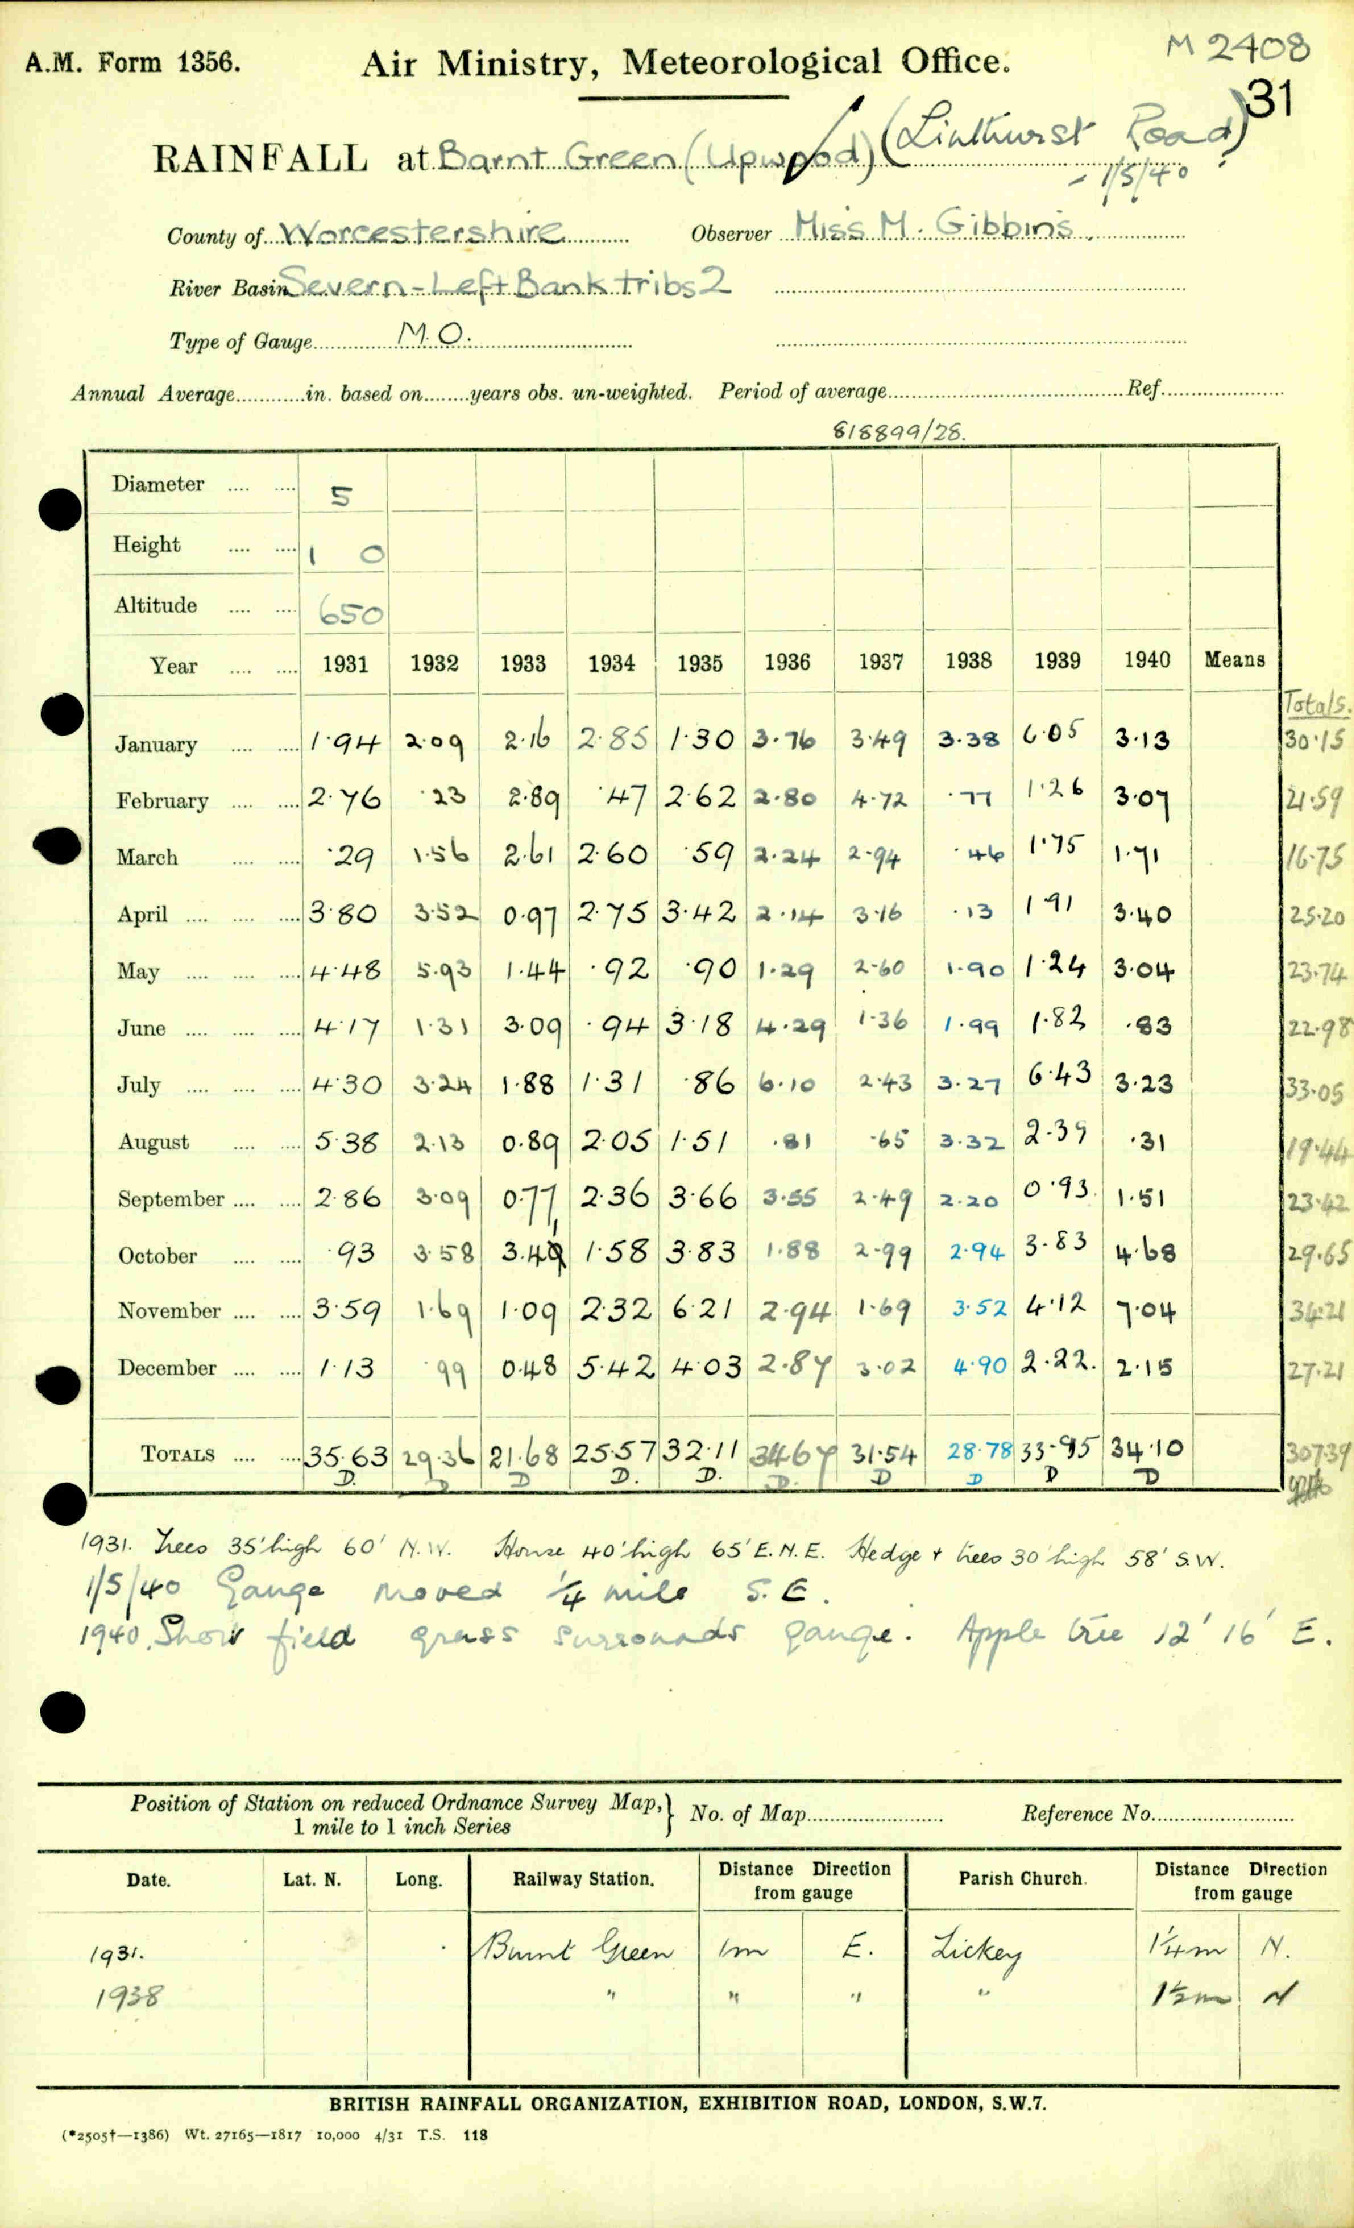 M 2408
A.M. Form 1356. Air Ministry, Meteorological Office.
31
RAINFALL at Barnt Green (Upwood) (Linthurst Road)
- 1/5/40
County of Worcestershire Observer Miss M. Gibbins.
River Basin Severn-Left Bank tribs 2
Type of Gauge M.O.
Annual Average in. based on years obs. un-weighted. Period of average Ref.
818899/28.
Diameter 5
Height 1 0
Altitude 650
Year 1931 1932 1933 1934 1935 1936 1937 1938 1939 1940 Means
Totals.
January 1.94 2.09 2.16 2.85 1.30 3.76 3.49 3.38 6.05 3.13 30.15
February 2.76 .23 2.89 .47 2.62 2.80 4.72 .77 1.26 3.07 21.59
March .29 1.56 2.61 2.60 .59 2.24 2.94 .46 1.75 1.71 16.75
April 3.80 3.52 0.97 2.75 3.42 2.14 3.16 .13 1.91 3.40 25.20
May 4.48 5.93 1.44 .92 .90 1.29 2.60 1.90 1.24 3.04 23.74
June 4.17 1.31 3.09 .94 3.18 4.29 1.36 1.99 1.82 .83 22.98
July 4.30 3.24 1.88 1.31 .86 6.10 2.43 3.27 6.43 3.23 33.05
August 5.38 2.13 0.89 2.05 1.51 .81 .65 3.32 2.39 .31 19.44
September 2.86 3.09 0.77 2.36 3.66 3.55 2.49 2.20 0.93 1.51 23.42
October .93 3.58 3.4 1.58 3.83 1.88 2.99 2.94 3.83 4.68 29.65
November 3.59 1.69 1.09 2.32 6.21 2.94 1.69 3.52 4.12 7.04 34.21
December 1.13 .99 0.48 5.42 4.03 2.87 3.02 4.90 2.22. 2.15 27.21
TOTALS 35.63 29.36 21.68 25.57 32.11 34.67 31.54 28.78 33.95 34.10 307.39
D. D D D. D. D. D D D D
1931. Trees 35' high 60' N.W. House 40' high 65' E.N.E. Hedge + trees 30' high 58' S.W.
1/5/40 Gauge moved ¼ mile S.E.
1940. Show field grass surrounds gauge. Apple tree 12' 16' E.
Position of Station on reduced Ordnance Survey Map, 1 mile to 1 inch Series } No. of Map Reference No.
Date. Lat. N. Long. Railway Station. Distance Direction from gauge Parish Church. Distance Direction from gauge
1931. Barnt Green 1m E. Lickey 1¼m N.
1938 " " " " 1½m N
BRITISH RAINFALL ORGANIZATION, EXHIBITION ROAD, LONDON, S.W.7.
(*2505†—1386) Wt. 27165—1817 10,000 4/31 T.S. 118